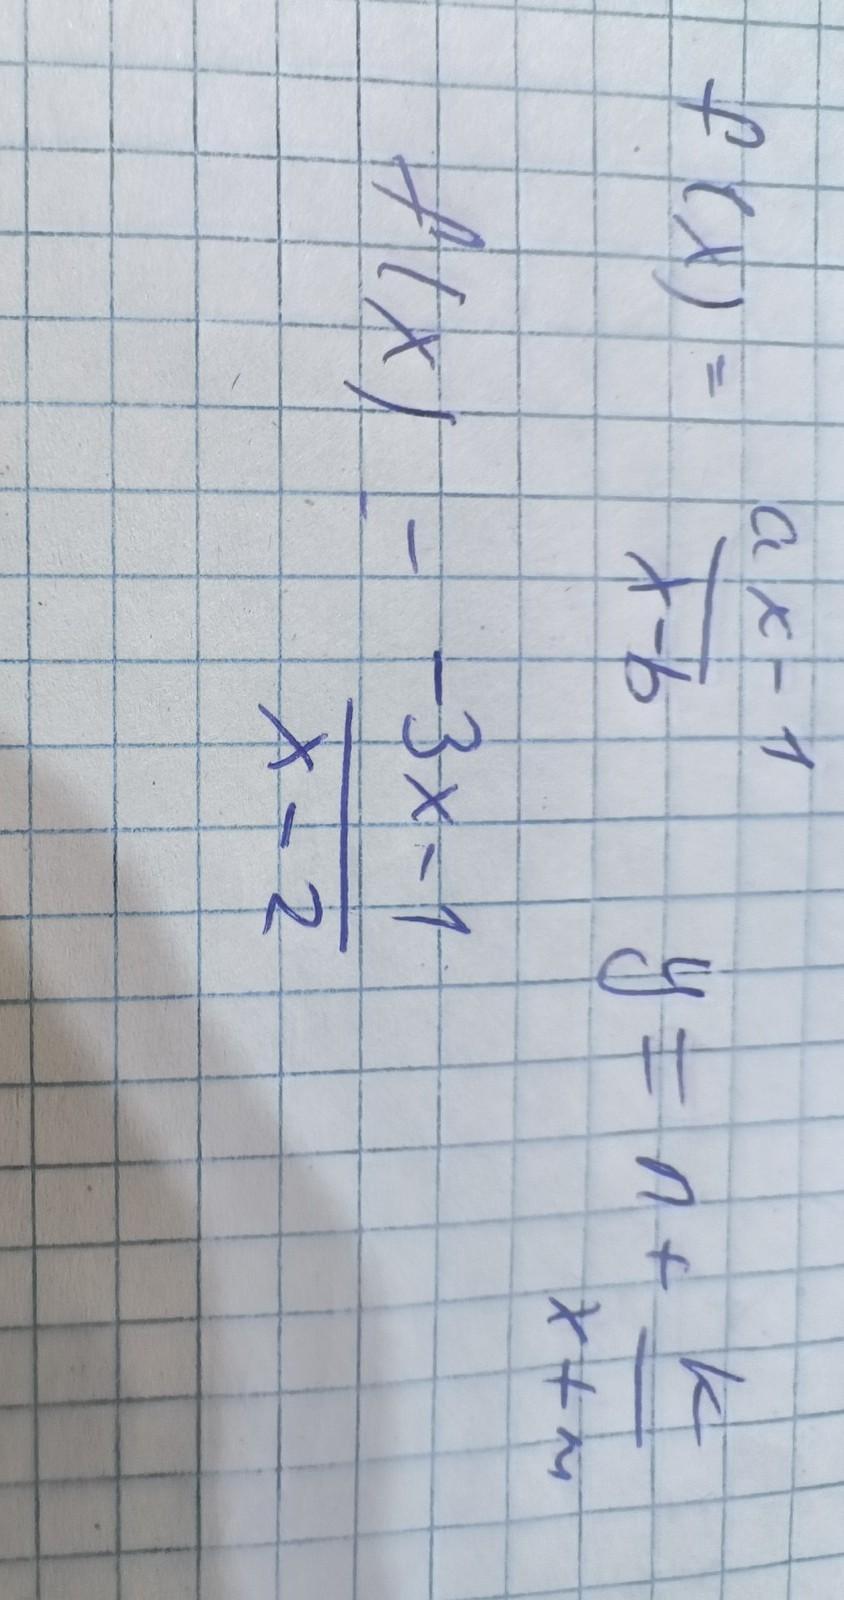 f(x) = \frac{ax-1}{x-b} y = n + \frac{k}{x+m}
f(x) = \frac{-3x-1}{x-2}